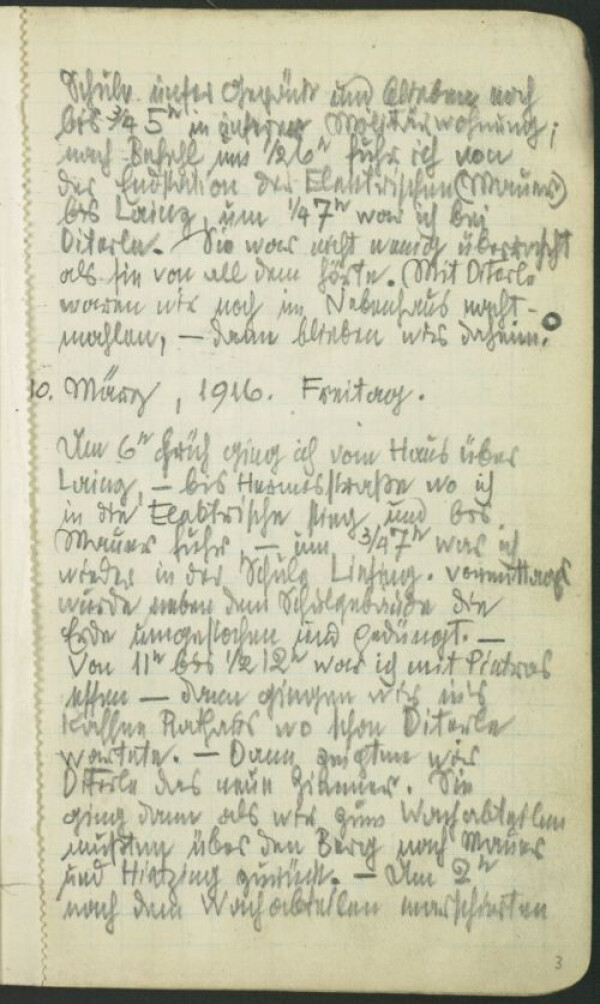 Schule unser Gepäck und blieben noch
bis 3/4 5h in unserer Militärwohnung;
nach Befehl um 1/2 6h fuhr ich von
der Endstation der Elektrischen (Mauer)
bis Lainz, um 1/4 7h war ich bei
Diterle. Sie war nicht wenig überrascht
als sie von all dem hörte. Mit Diterle
waren wir noch im Nebenhaus nacht-
mahlen, — dann blieben wir daheim.
10. März, 1916. Freitag.
Um 6h früh ging ich vom Haus über
Lainz, — bis Hermesstraße wo ich
in die Elektrische stieg und bis
Mauer fuhr, — um 3/4 7h war ich
wieder in der Schule Liesing. vormittags
wurde neben dem Schulgebäude die
Erde umgestochen und gedüngt. —
Von 11h bis 1/2 12h war ich mit
essen — dann gingen wir ins
Kaffee Rathaus wo schon Diterle
wartete. — Dann zeigten wir
Diterle das neue Zimmer. Sie
ging dann als wir zum Wachabteilen
mußten über den Berg nach Mauer
und Hietzing zurück. — Um 2h
nach dem Wachabteilen marschierten
3